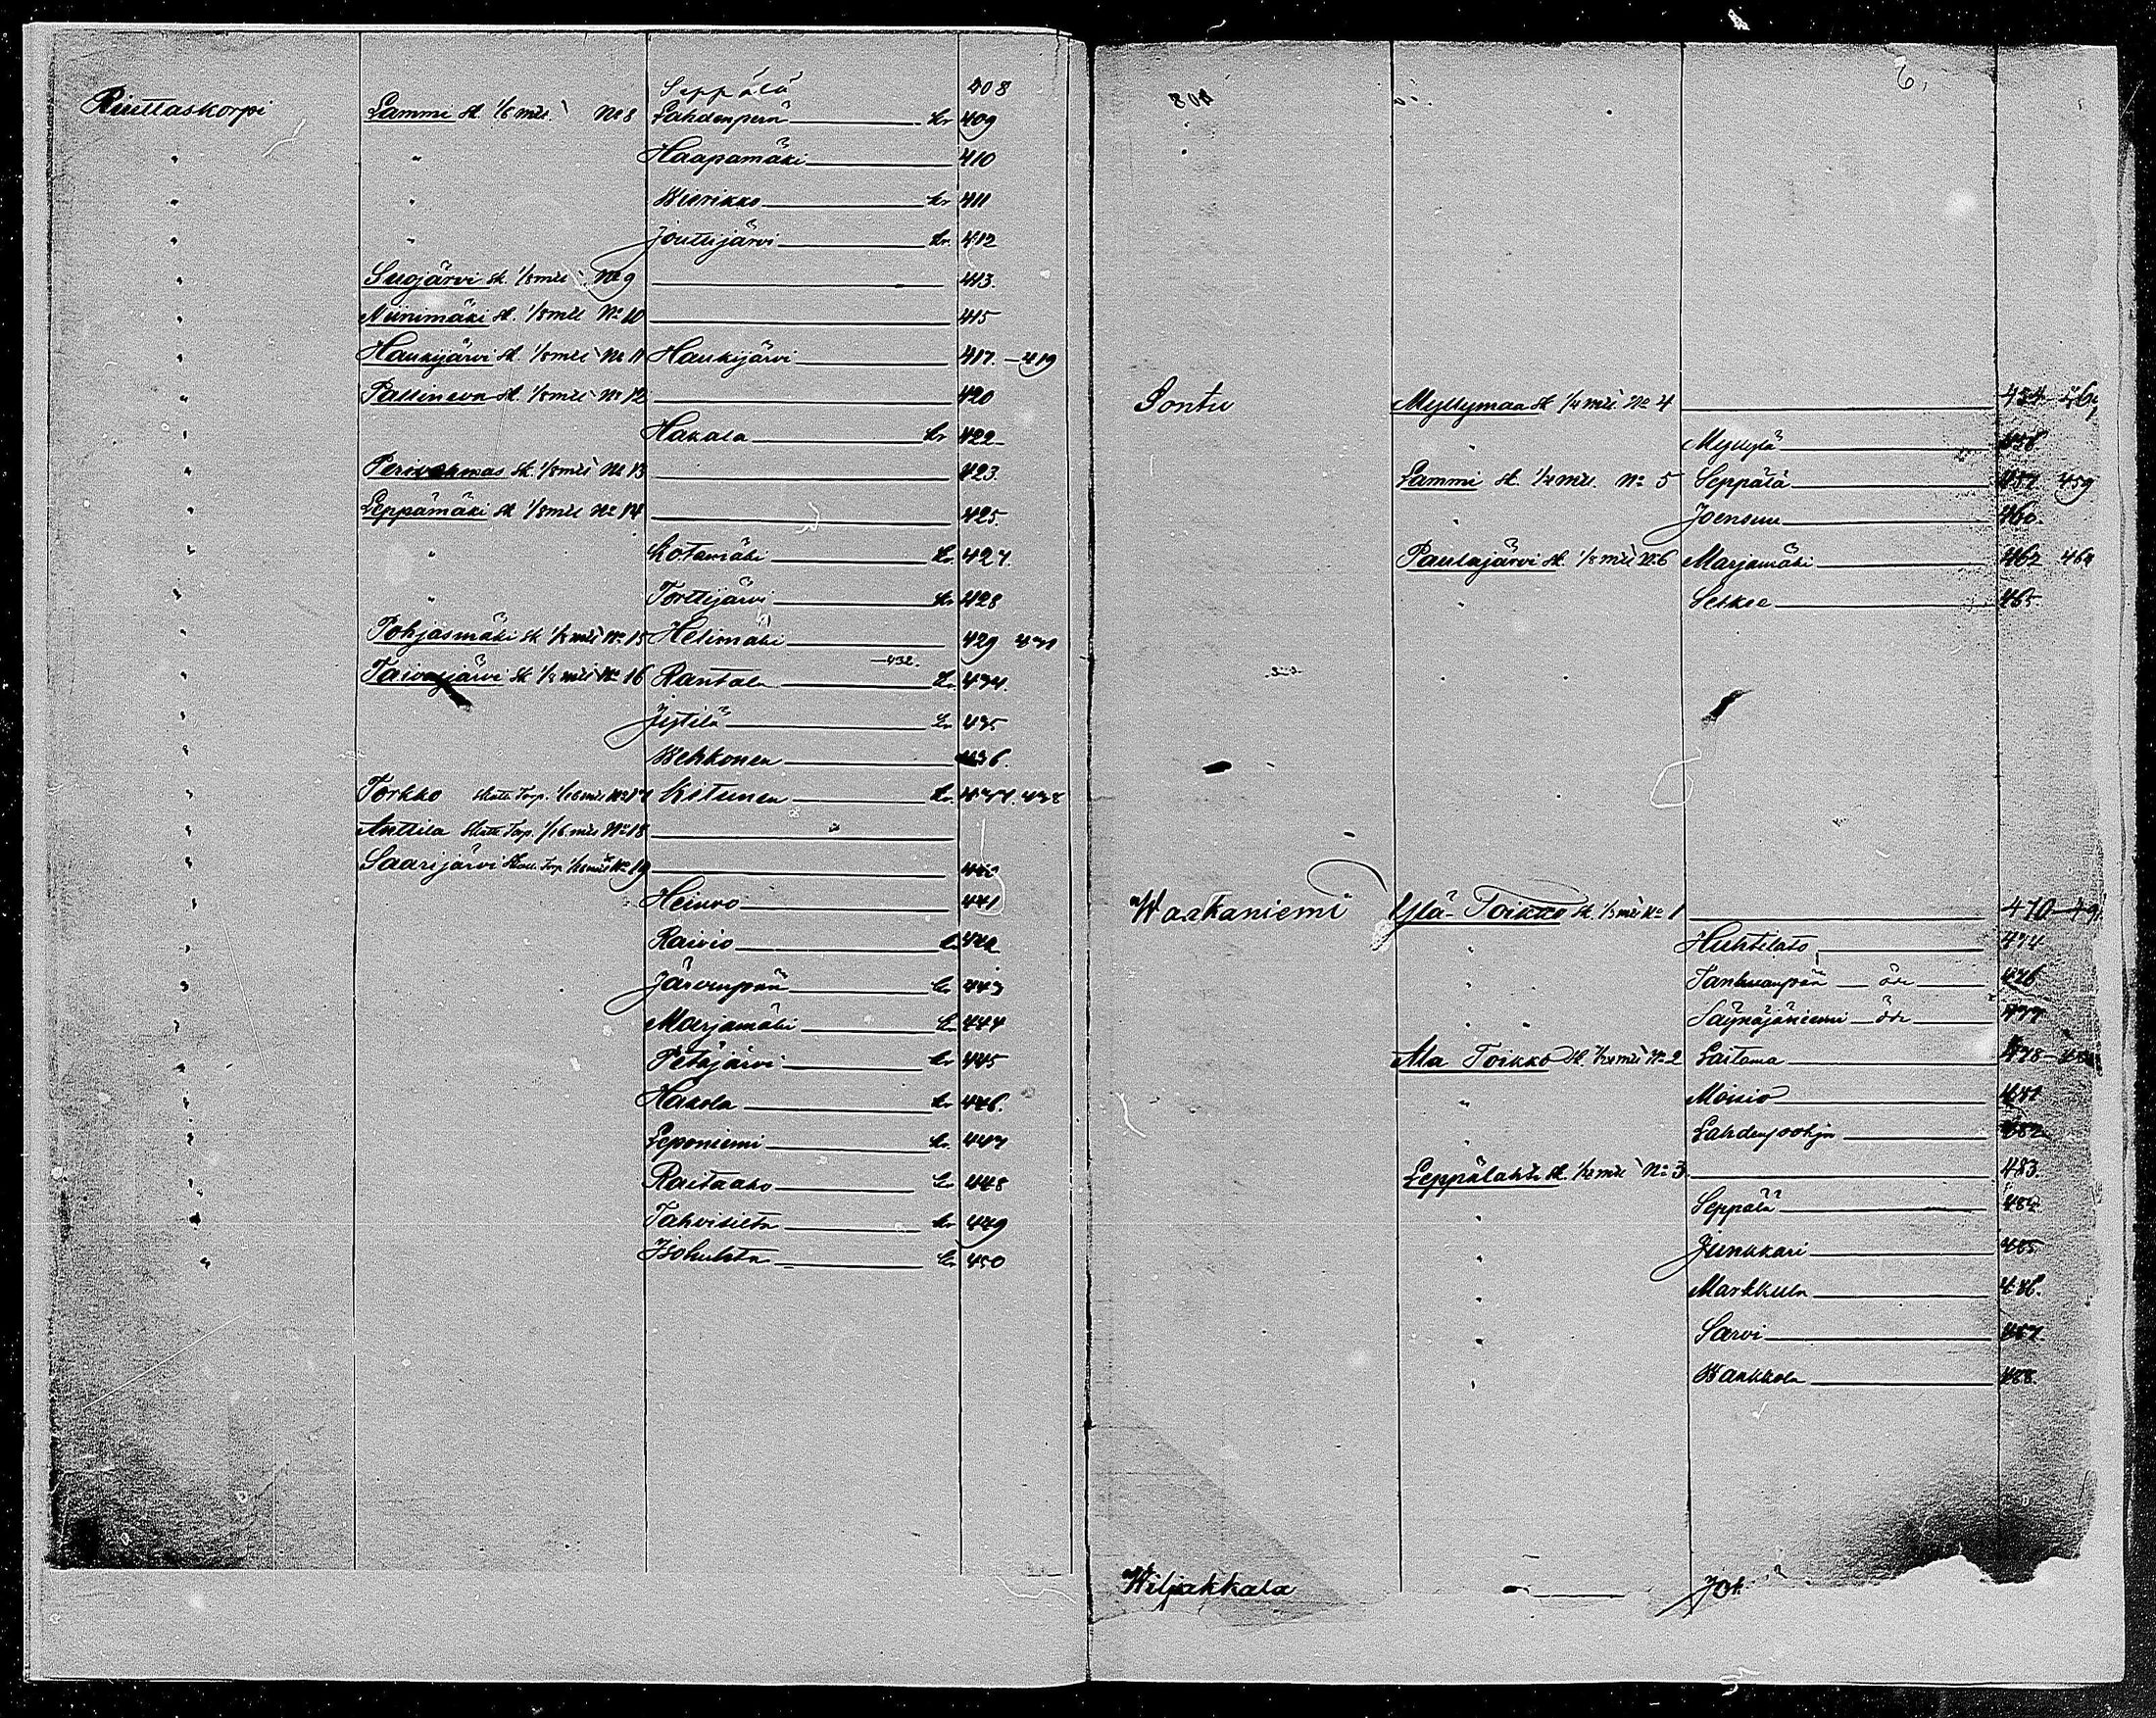 Seppälä 408
Riuttaskorpi Lammi sk. 1/6 mtl. No 8 Lahdenperä Kr 409
" " Haapamäki 410
" " Wierikko Kr 411
" " Jouttijärvi Kr. 412
" Suojärvi sk. 1/8 mtl No 9 413.
" Niinimäki sk. 1/8 mtl No 10 415
" Haukijärvi sk. 1/8 mtl No 11 Haukijärvi 417.-419
" Pallineva sk. 1/8 mtl No 12 420
" Hakala Kr 422
" sk. 1/8 mtl No 13 423.
" Leppämäki sk 1/8 mtl No 14 425.
" " Kotamäki Kr. 427.
" " Torttijärvi Kr 428
" Pohjasmäki sk 1/8 mtl No 15 Helimäki 429
432.
" Taivasjärvi sk 1/8 mtl No 16 Rantala Kr. 434.
" Jystilä Kr 435
" Wehkonen 436.
" Torkko Skatte Torp. 1/16 mtl No 17 Kitunen Kr. 437. 438
" Anttila Skatte Torp. 1/16 mtl No 18
" Saarijärvi Skatte Torp 1/16 mtl No 19
" Heinäo 441
" Raivio 442
" Järvenpää Kr 443
" Marjamäki Kr 444
" Petäjärvi Kr 445
" Hakola Kr 446.
" Leponiemi Kr. 447
" Raitaaho Kr 448
" Tahvisilta Kr 449
" Isohuhta Kr 450
6,
408
Sontu Myllymaa sk 1/4 mtl. No 4 454
" Myllylä 458
Lammi sk. 1/4 mtl. No 5 Seppälä 457 459
" Joensuu 460.
Paulajärvi sk. 1/8 mtl No 6 Marjamäki 462 464
" Selkee 465.
Waskaniemi Ylä-Toikko sk. 1/3 mtl No 1 470
" Huhtilato 474
" Tanhuanpää öde 476
" " Säynäjäniemi öde 477
Ala Toikko sk. mtl No 2 Laitama 478
" Moisio 481
" Lahdenpohja 482
Leppälahti sk. 1/2 mtl No 3. 483.
" Seppälä 484
" Junkkari 485
" Markkula 486.
" Sarvi 487.
" Wankkola 488.
Wiljakkala